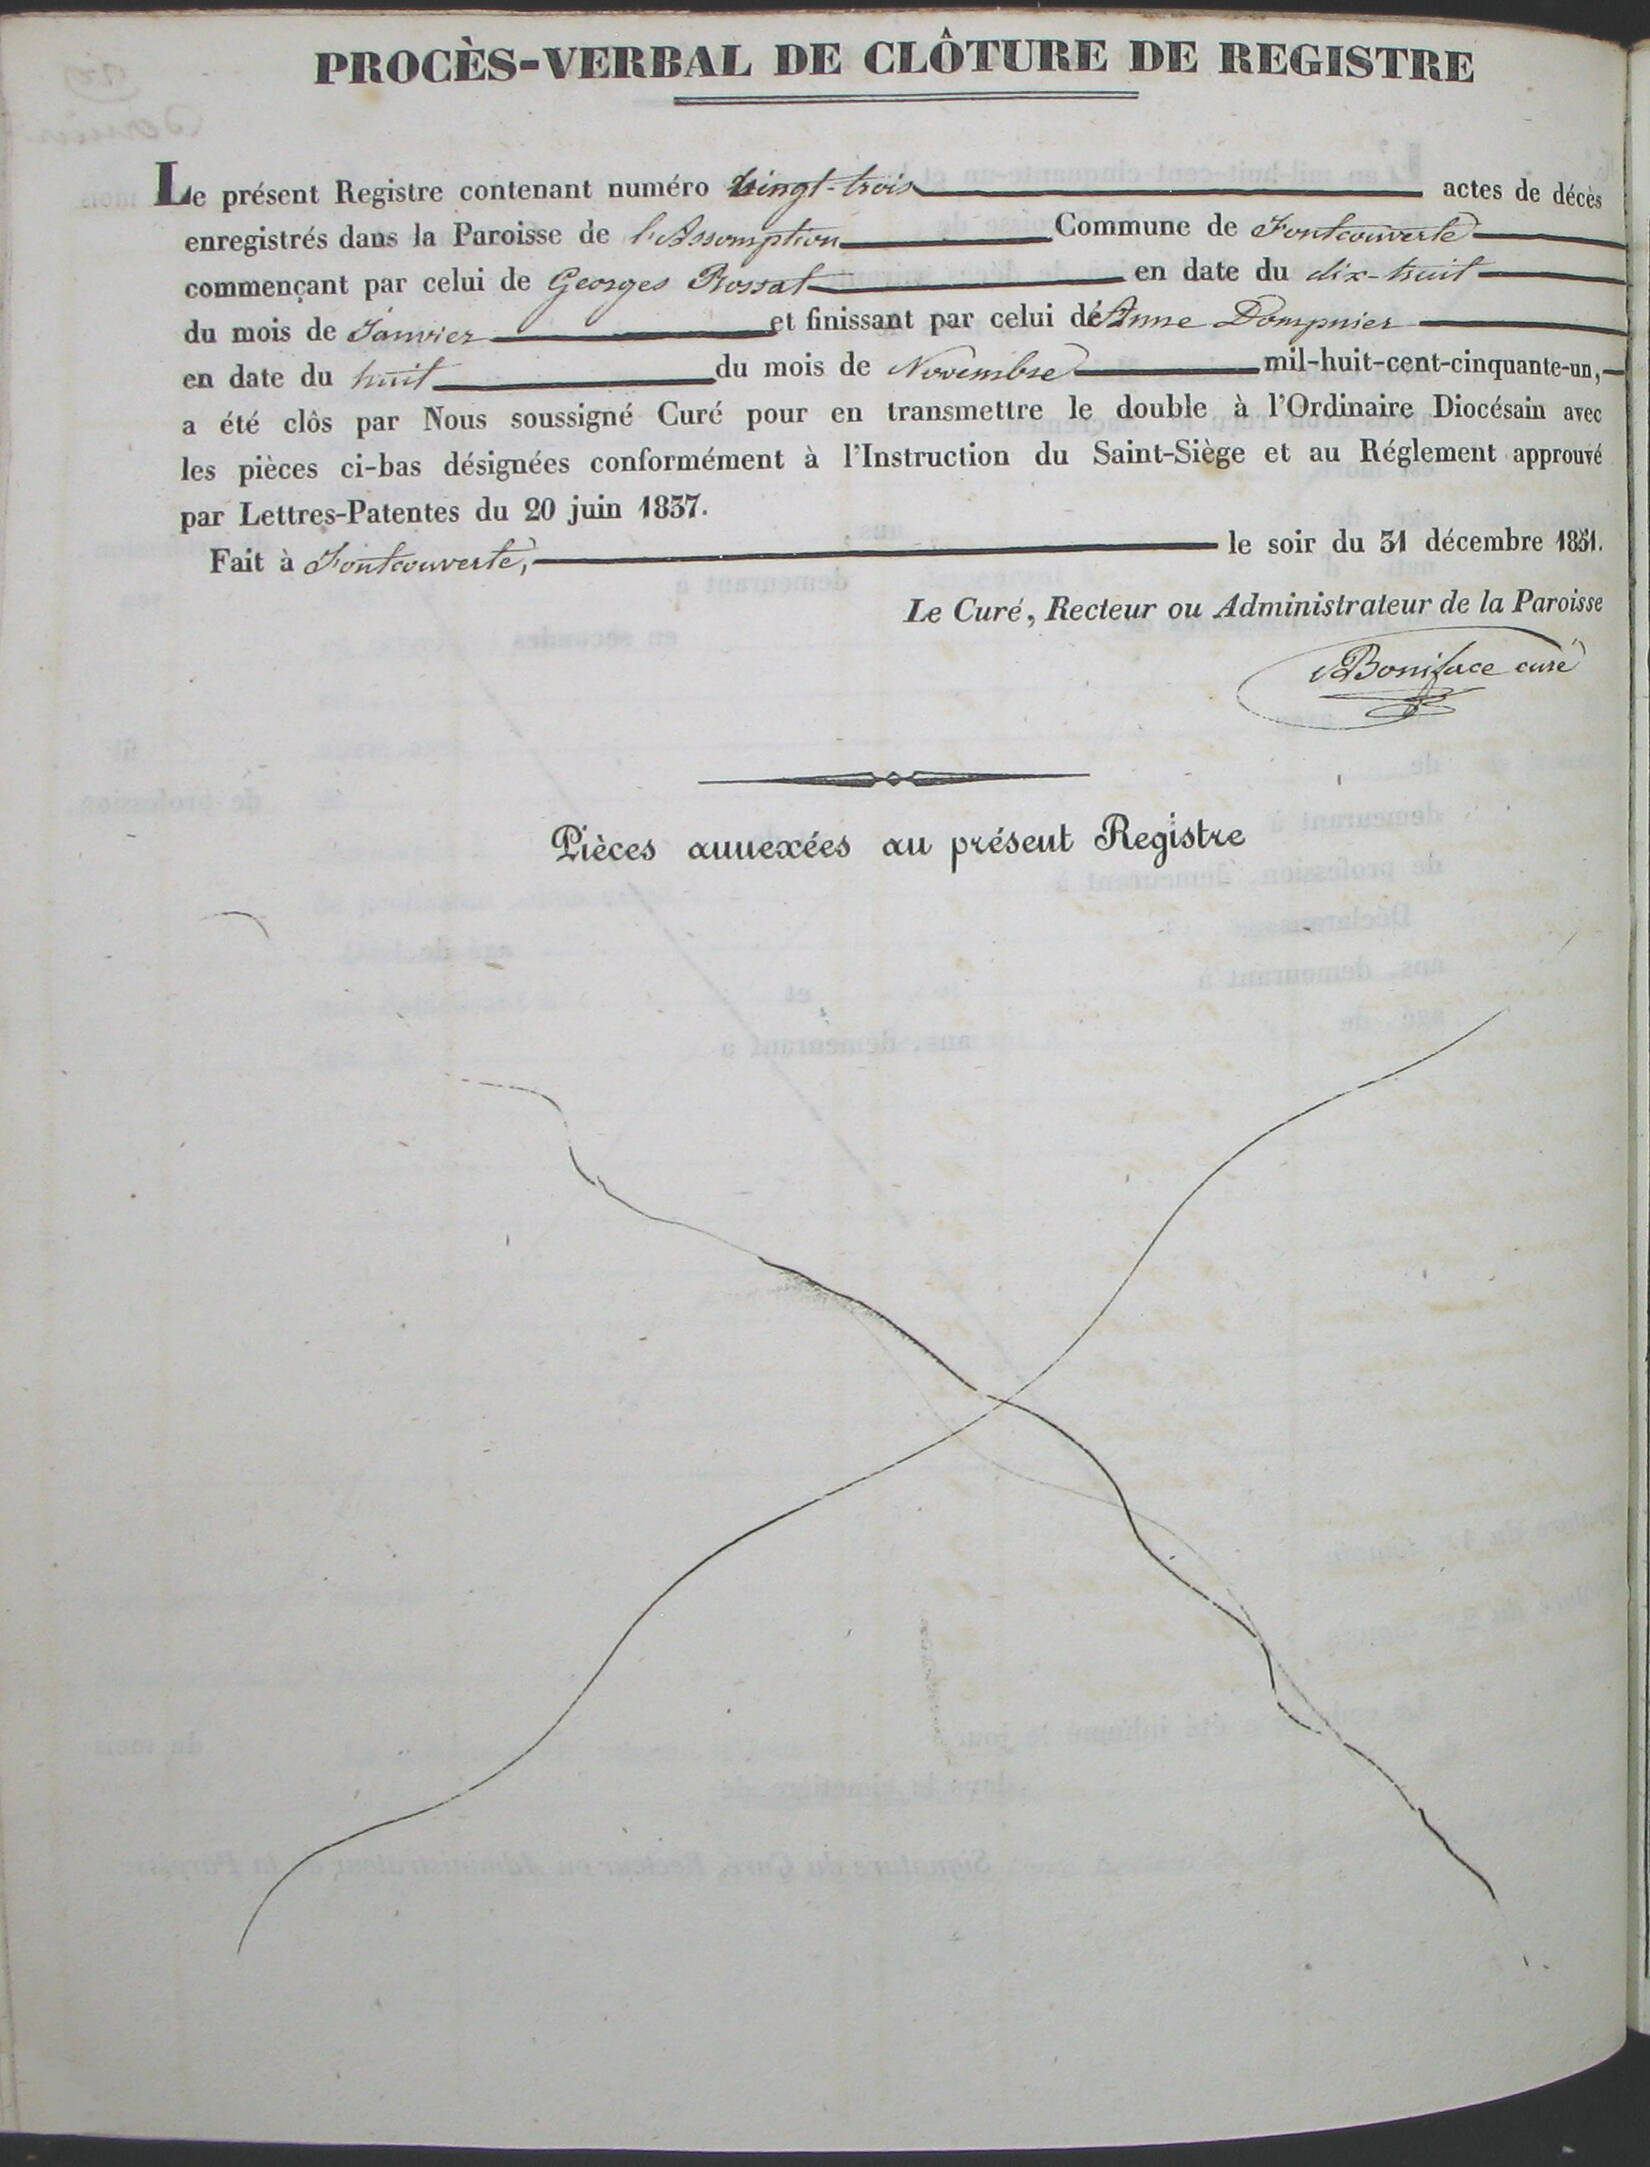 PROCÈS-VERBAL DE CLÔTURE DE REGISTRE
Le présent Registre contenant numéro vingt-trois actes de décès
enregistrés dans la Paroisse de l'Assomption Commune de Fontcouverte
commençant par celui de Georges Rossat en date du dix-huit
du mois de Janvier et finissant par celui dé Anne Dompnier
en date du huit du mois de Novembre mil-huit-cent-cinquante-un,
a été clôs par Nous soussigné Curé pour en transmettre le double à l'Ordinaire Diocésain avec
les pièces ci-bas désignées conformément à l'Instruction du Saint-Siège et au Réglement approuvé
par Lettres-Patentes du 20 juin 1837.
Fait à Fontcouverte, le soir du 31 décembre 1851.
Le Curé, Recteur ou Administrateur de la Paroisse
Boniface curé
Pièces annexées au présent Registre